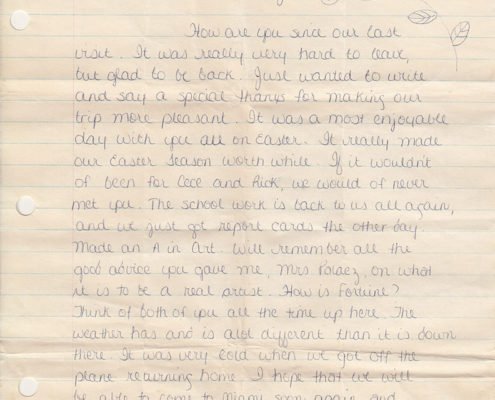 How are you since our last
visit. It was really very hard to leave,
but glad to be back. Just wanted to write
and say a special thanks for making our
trip more pleasant. It was a most enjoyable
day with you all on Easter. It really made
our Easter Season worth while. If it wouldn't
of been for Cece and Rick, we would of never
met you. The school work is back to us all again,
and we just got report cards the other day.
Made an A in Art. Will remember all the
good advice you gave me, Mrs Polaez, on what
it is to be a real artist. How is Fortune?
Think of both of you all the time up here. The
weather has and is alot different than it is down
there. It was very cold when we got off the
plane returning home. I hope that we will
be able to come to Miami soon again, and